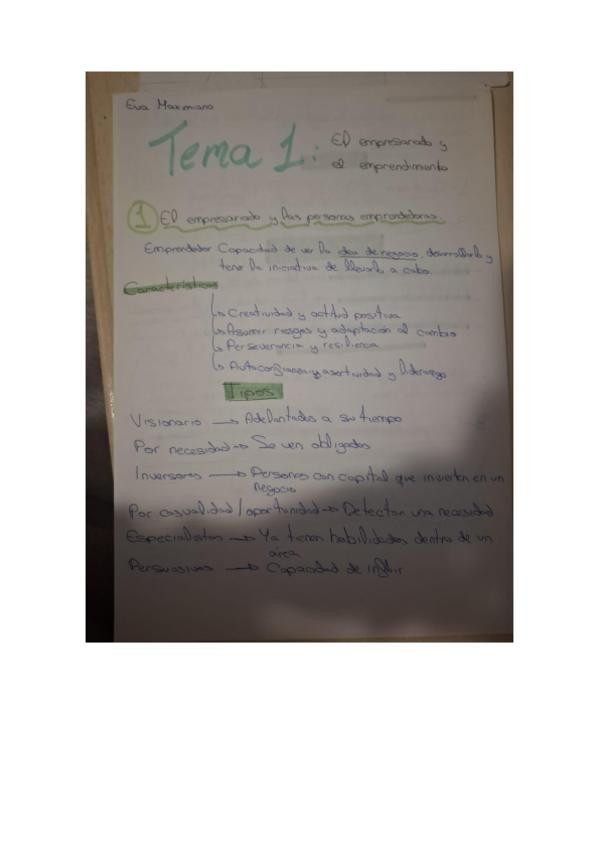 Eva Maximiano
Tema 1: El empresariado y
el emprendimiento
1 El empresariado y las personas emprendedoras.
Emprendedor: Capacidad de ver la idea de negocio, desarrollarla y
tene la iniciativa de llevarla a cabo.
Características
↳ Creatividad y actitud positiva
↳ Asumir riesgos y adaptación al cambio
↳ Perseverancia y resiliencia
↳ Autoconfianza y asertividad y liderazgo
Tipos
Visionario → Adelantados a su tiempo
Por necesidad → Se ven obligados
Inversores → Personas con capital que invierten en un
negocio
Por casualidad / oportunidad → Detectan una necesidad
Especialistas → Ya tienen habilidades dentro de un
área
Persuasivos → Capacidad de influir